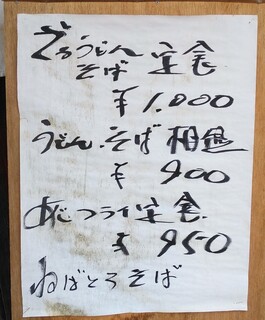 ざるうどん
そば 定食
¥1,000
うどん.そば 相盛
¥900
あじフライ定食.
¥950
ねばとろそば